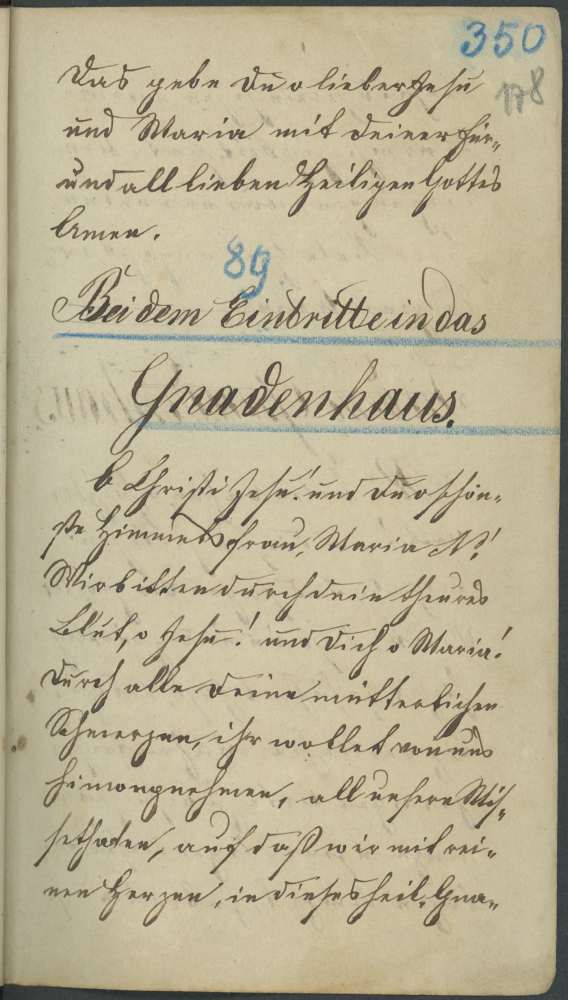 350
178
Das gebe Du o lieber Jesu
und Maria mit deiner Für„
und all lieben Heiligen Gottes
Amen.
89
Bei dem Eintritte in das
Gnadenhaus.
O Christi Jesu! und Du o schön„
ste Himmelsfrau, Maria N!
Wir bitten durch dein theures
Blut, o Jesu! und Dich o Maria!
Durch alle deine mütterlichen
Schmerzen, ihr wollet von uns
hinwegnehmen, all unsere Mis„
sethaten, auf daß wir mit rei„
nen Herzen, in dieses heil. Gna„